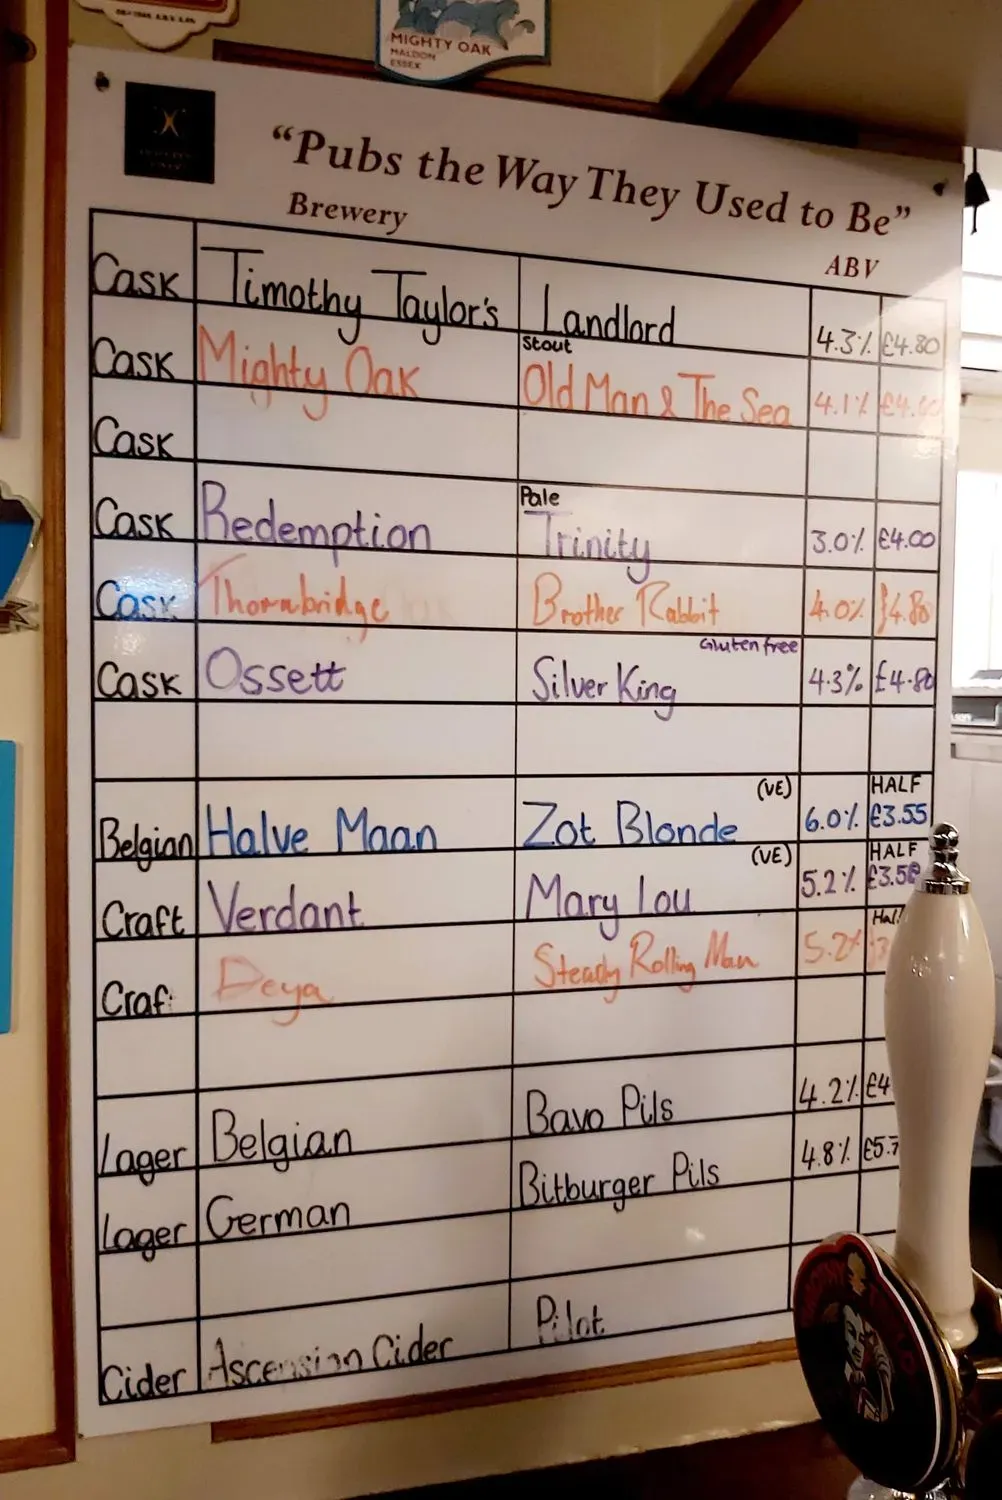 MIGHTY OAK
MALDON
ESSEX
"Pubs the Way They Used to Be"
Brewery
ABV
Cask Timothy Taylor's Landlord 4.3% £4.80
Cask Mighty Oak Stout Old Man & The Sea 4.1%
Cask
Cask Redemption Pale Trinity 3.0% £4.00
Cask Thornbridge Brother Rabbit 4.0% £4.80
Cask Ossett Gluten free Silver King 4.3% £4.80
Belgian Halve Maan Zot Blonde (VE) 6.0% HALF £3.55
Craft Verdant Mary Lou (VE) 5.2% HALF
Craf Deya Steady Rolling Man 5.2% Hal
Lager Belgian Bavo Pils 4.2% £4
Lager German Bitburger Pils 4.8% £5.7
Cider Ascension Cider Pilot